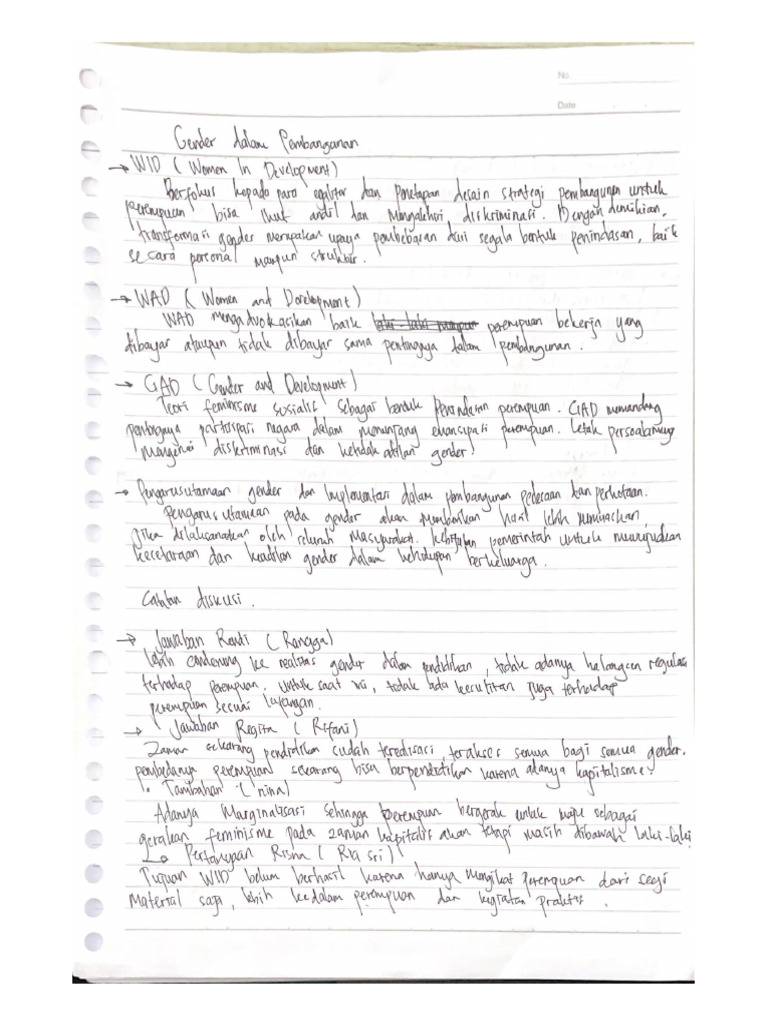 No.
Date
Gender dalam Pembangunan
→ WID (Women In Development)
Berfokus kepada para egaliter dan penetapan desain strategi pembangunan untuk
perempuan bisa ikut andil dan mengakhiri diskriminasi. Dengan demikian,
transformasi gender merupakan upaya pembebasan dari segala bentuk penindasan, baik
secara personal maupun struktur.
→ WAD (Women and Development)
WAD mengadvokasikan baik laki-laki maupun perempuan bekerja yang
dibayar ataupun tidak dibayar sama pentingnya dalam pembangunan.
→ GAD (Gender and Development)
Teori feminisme sosialis sebagai bentuk Penindasan perempuan. GAD memandang
pentingnya partisipasi negara dalam menunjang emansipasi perempuan. Letak persoalannya
mengenai diskriminasi dan ketidakadilan gender.
→ Pengarusutamaan gender dan Implementasi dalam pembangunan pedesaan dan perkotaan.
Pengarusutamaan pada gender akan memberikan hasil lebih
jika dilaksanakan oleh seluruh masyarakat. Kebijakan pemerintah untuk mewujudkan
kesetaraan dan keadilan gender dalam kehidupan berkeluarga.
Catatan diskusi.
→ Jawaban Randi (Rangga)
Lebih cenderung ke realitas gender dalam pendidikan, tidak adanya halangan regulasi
terhadap perempuan. Untuk saat ini, tidak ada kesulitan juga terhadap
perempuan sesuai lapangan.
→ Jawaban Regita (Rifani)
Zaman sekarang pendidikan sudah terakses semua bagi semua gender.
pembedanya perempuan sekarang bisa berpendidikan karena adanya kapitalisme.
• Tambahan (nina)
Adanya Marginalisasi sehingga perempuan bergerak untuk maju sebagai
gerakan feminisme pada zaman kapitalis akan tetapi masih dibawah laki-laki
↳ Pertanyaan Risma (Ria Sri)
Tujuan WID belum berhasil karena hanya mengikat perempuan dari segi
Material saja, lebih kedalam perempuan dan kegiatan praktis.